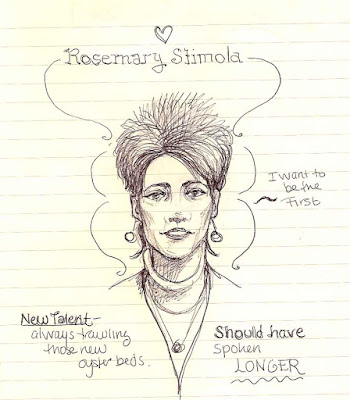 Rosemary Stimola
I want to
be the
first
New Talent -
always trawling
those new
oyster beds.
Should have
spoken
LONGER